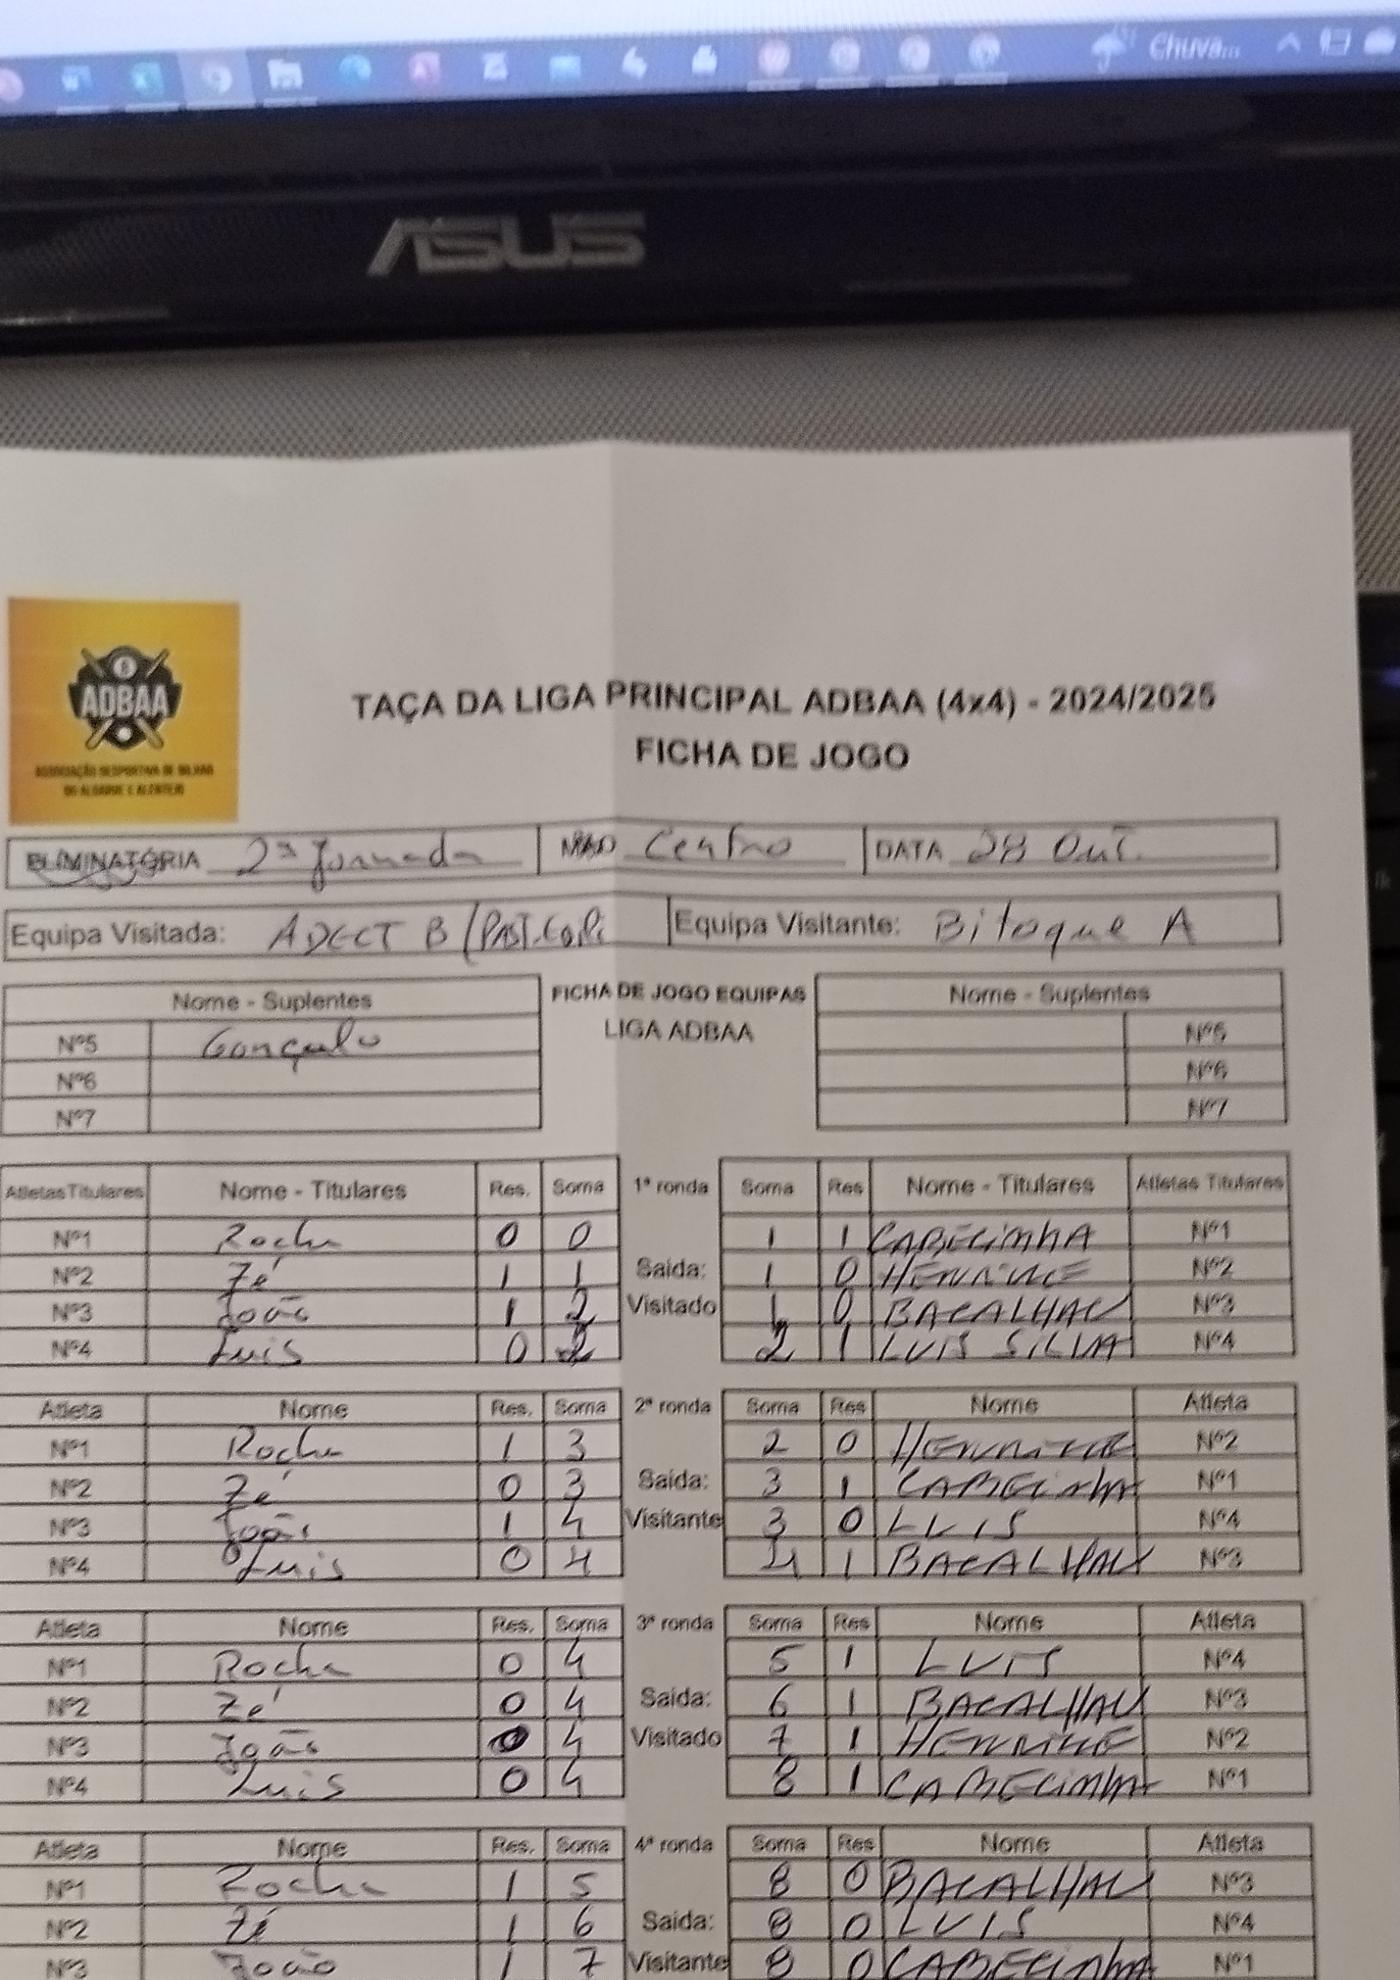 Chuva...
ASUS
ADBAA
ASSOCIAÇÃO DESPORTIVA DE BILHAR
DO ALGARVE E ALENTEJO
TAÇA DA LIGA PRINCIPAL ADBAA (4x4) - 2024/2025
FICHA DE JOGO
ELIMINATÓRIA 2ª Jornada Centro DATA 28 OUT.
Equipa Visitada: ADECT B / Equipa Visitante: Bitoque A
Nome - Suplentes FICHA DE JOGO EQUIPAS Nome - Suplentes
LIGA ADBAA
Nº5 Gonçalo Nº5
Nº6 Nº6
Nº7 Nº7
Atletas Titulares Nome - Titulares Res. Soma 1ª ronda Soma Res Nome - Titulares Atletas Titulares
Nº1 Rocha 0 0 1 1 CABECINHA Nº1
Nº2 Zé 1 1 Saida: 1 0 HENRIQUE Nº2
Nº3 João 1 2 Visitado 1 0 BACALHAU Nº3
Nº4 Luis 0 2 2 1 LUIS SILVA Nº4
Atleta Nome Res. Soma 2ª ronda Soma Res Nome Atleta
Nº1 Rocha 1 3 2 0 HENRIQUE Nº2
Nº2 Zé 0 3 Saida: 3 1 CABECINHA Nº1
Nº3 João 1 4 Visitante 3 0 LUIS Nº4
Nº4 Luis 0 4 4 1 BACALHAU Nº3
Atleta Nome Res. Soma 3ª ronda Soma Res Nome Atleta
Nº1 Rocha 0 4 5 1 LUIS Nº4
Nº2 Zé 0 4 Saida: 6 1 BACALHAU Nº3
Nº3 João 0 4 Visitado 7 1 HENRIQUE Nº2
Nº4 Luis 0 4 8 1 CABECINHA Nº1
Atleta Nome Res. Soma 4ª ronda Soma Res Nome Atleta
Nº1 Rocha 1 5 8 0 BACALHAU Nº3
Nº2 Zé 1 6 Saida: 8 0 LUIS Nº4
Nº3 João 1 7 Visitante 8 0 CABECINHA Nº1